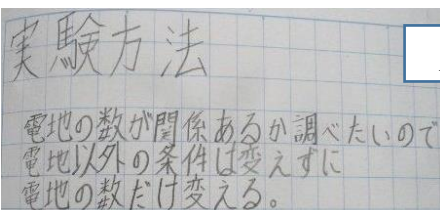 実験方法
電地の数が関係あるか調べたいので
電地以外の条件は変えずに
電地の数だけ変える。